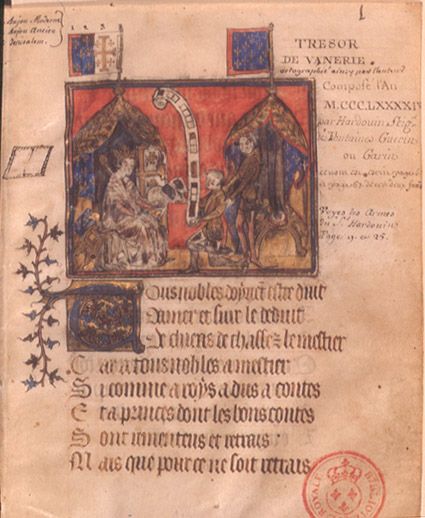 1 2 3
Anjou Moderne
Anjou Ancien
Jerusalem.
1
TRESOR
DE VANERIE.
ortographié ainsy par l'auteur
Composé l'An
M.CCC.LXXXXIV
par Hardouin Seig.r
de Fontaines Guerin
ou Garin
Voyez les Armes
du S.r Hardouin
Page 9. et 25.
Tous nobles doyvēt estre duit
Damer et suir le deduit
De chiens de chasse z le mestier
Car a tous nobles a mestier
Si comme a roys a dus a contes
Et a princes dont les bons contes
Sont et retrais
Mais que pour ce ne soit retrais
ROYALE